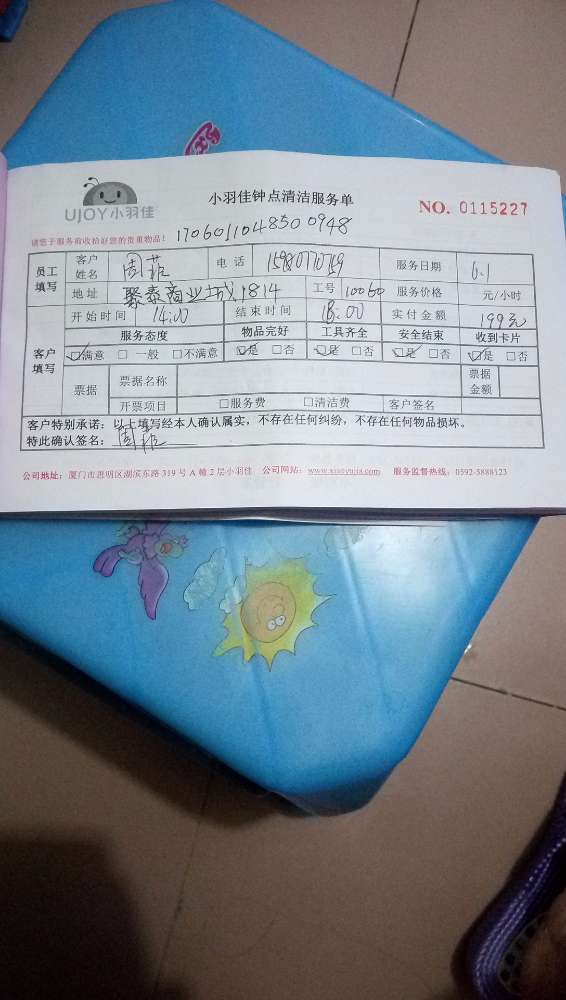 UJOY小羽佳
小羽佳钟点清洁服务单
NO. 0115227
请您于服务前收拾好您的贵重物品！ 1706011048500948
员工填写 客户姓名 周菲 电话 15980770759 服务日期 6.1
地址 聚泰商业城1814 工号 10060 服务价格 元/小时
开始时间 14:00 结束时间 18:00 实付金额 199元
客户填写 服务态度 物品完好 工具齐全 安全结束 收到卡片
☑满意 □一般 □不满意 ☑是 □否 ☑是 □否 ☑是 □否 ☑是 □否
票据 票据名称 票据金额
开票项目 □服务费 □清洁费 客户签名
客户特别承诺：以上填写经本人确认属实，不存在任何纠纷，不存在任何物品损坏。
特此确认签名：周菲
公司地址：厦门市思明区湖滨东路 319 号 A 幢 2 层小羽佳 公司网站：www.xiaoyujia.com 服务监督热线：0592-5888123